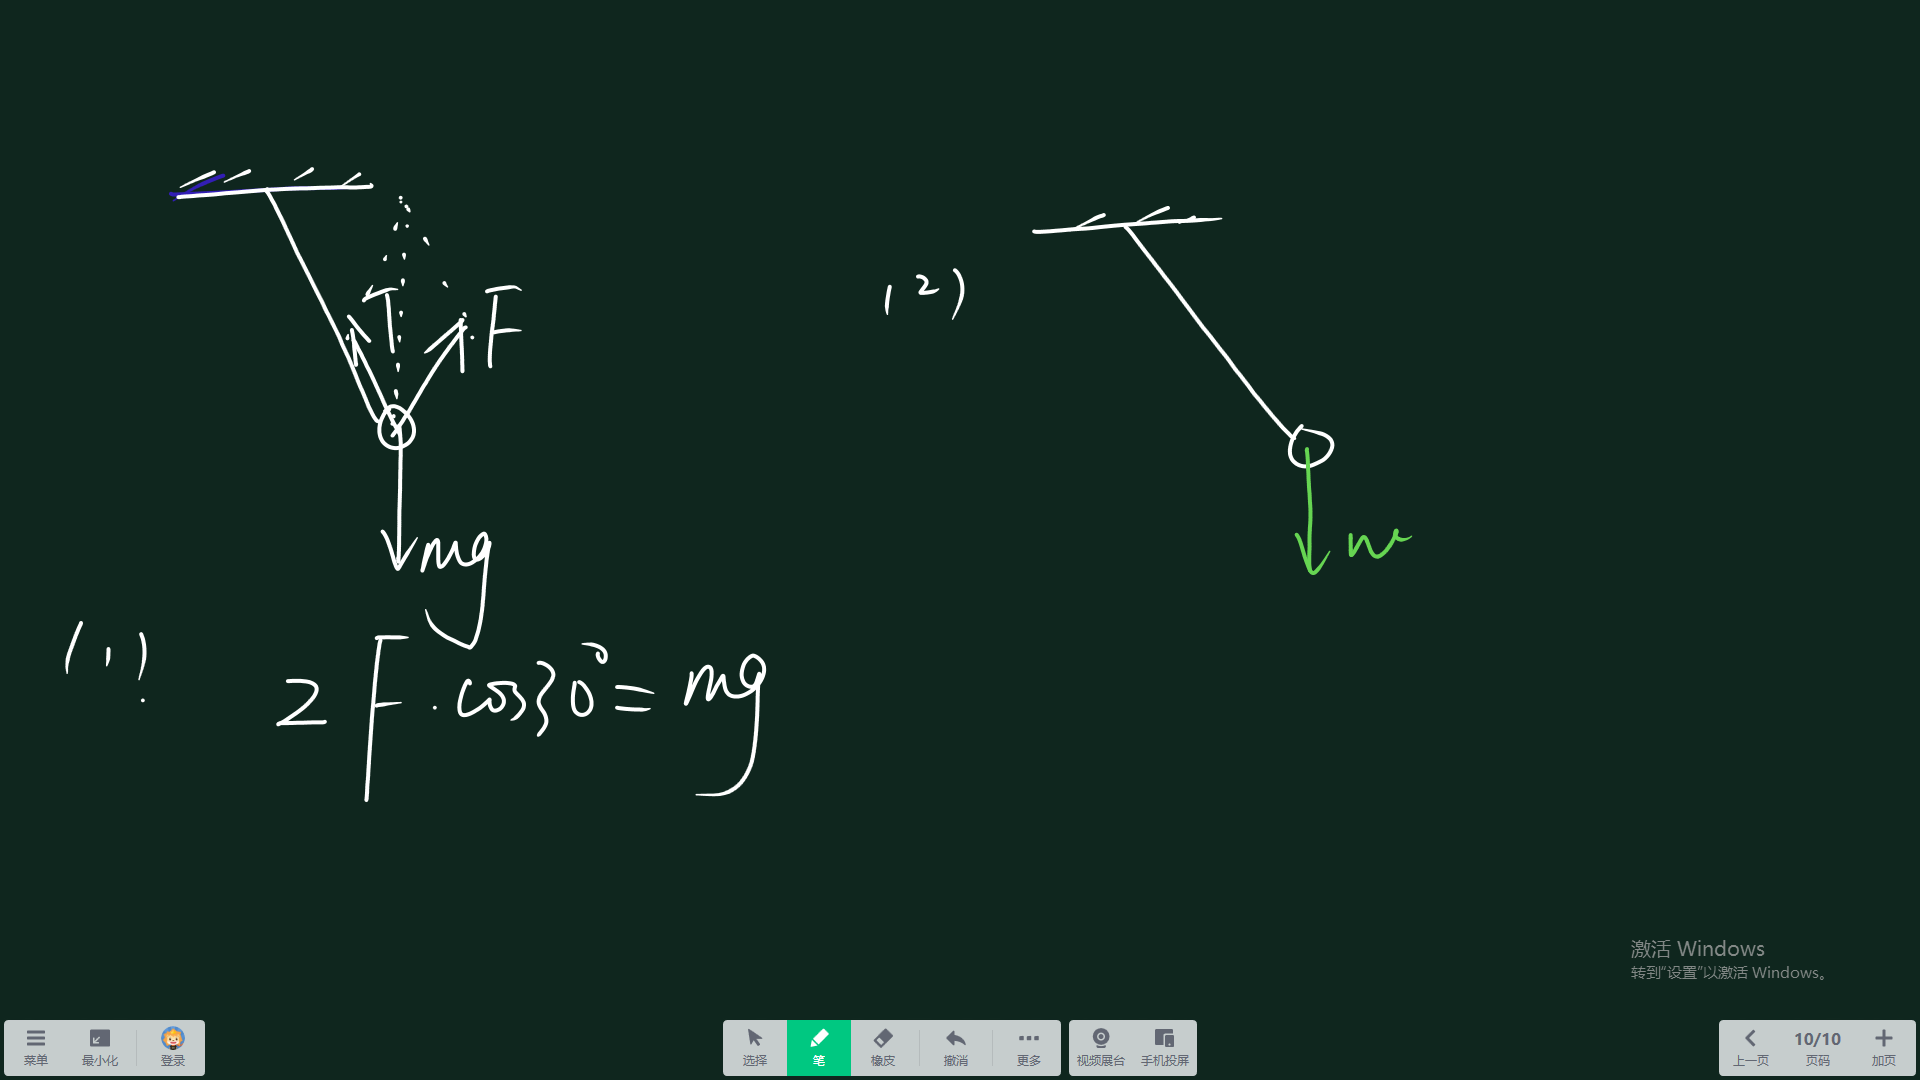 T
F
mg
(1)
2F·cos30°=mg
(2)
激活 Windows
转到“设置”以激活 Windows。
菜单
最小化
登录
选择
笔
橡皮
撤消
更多
视频展台
手机投屏
上一页
10/10
页码
加页